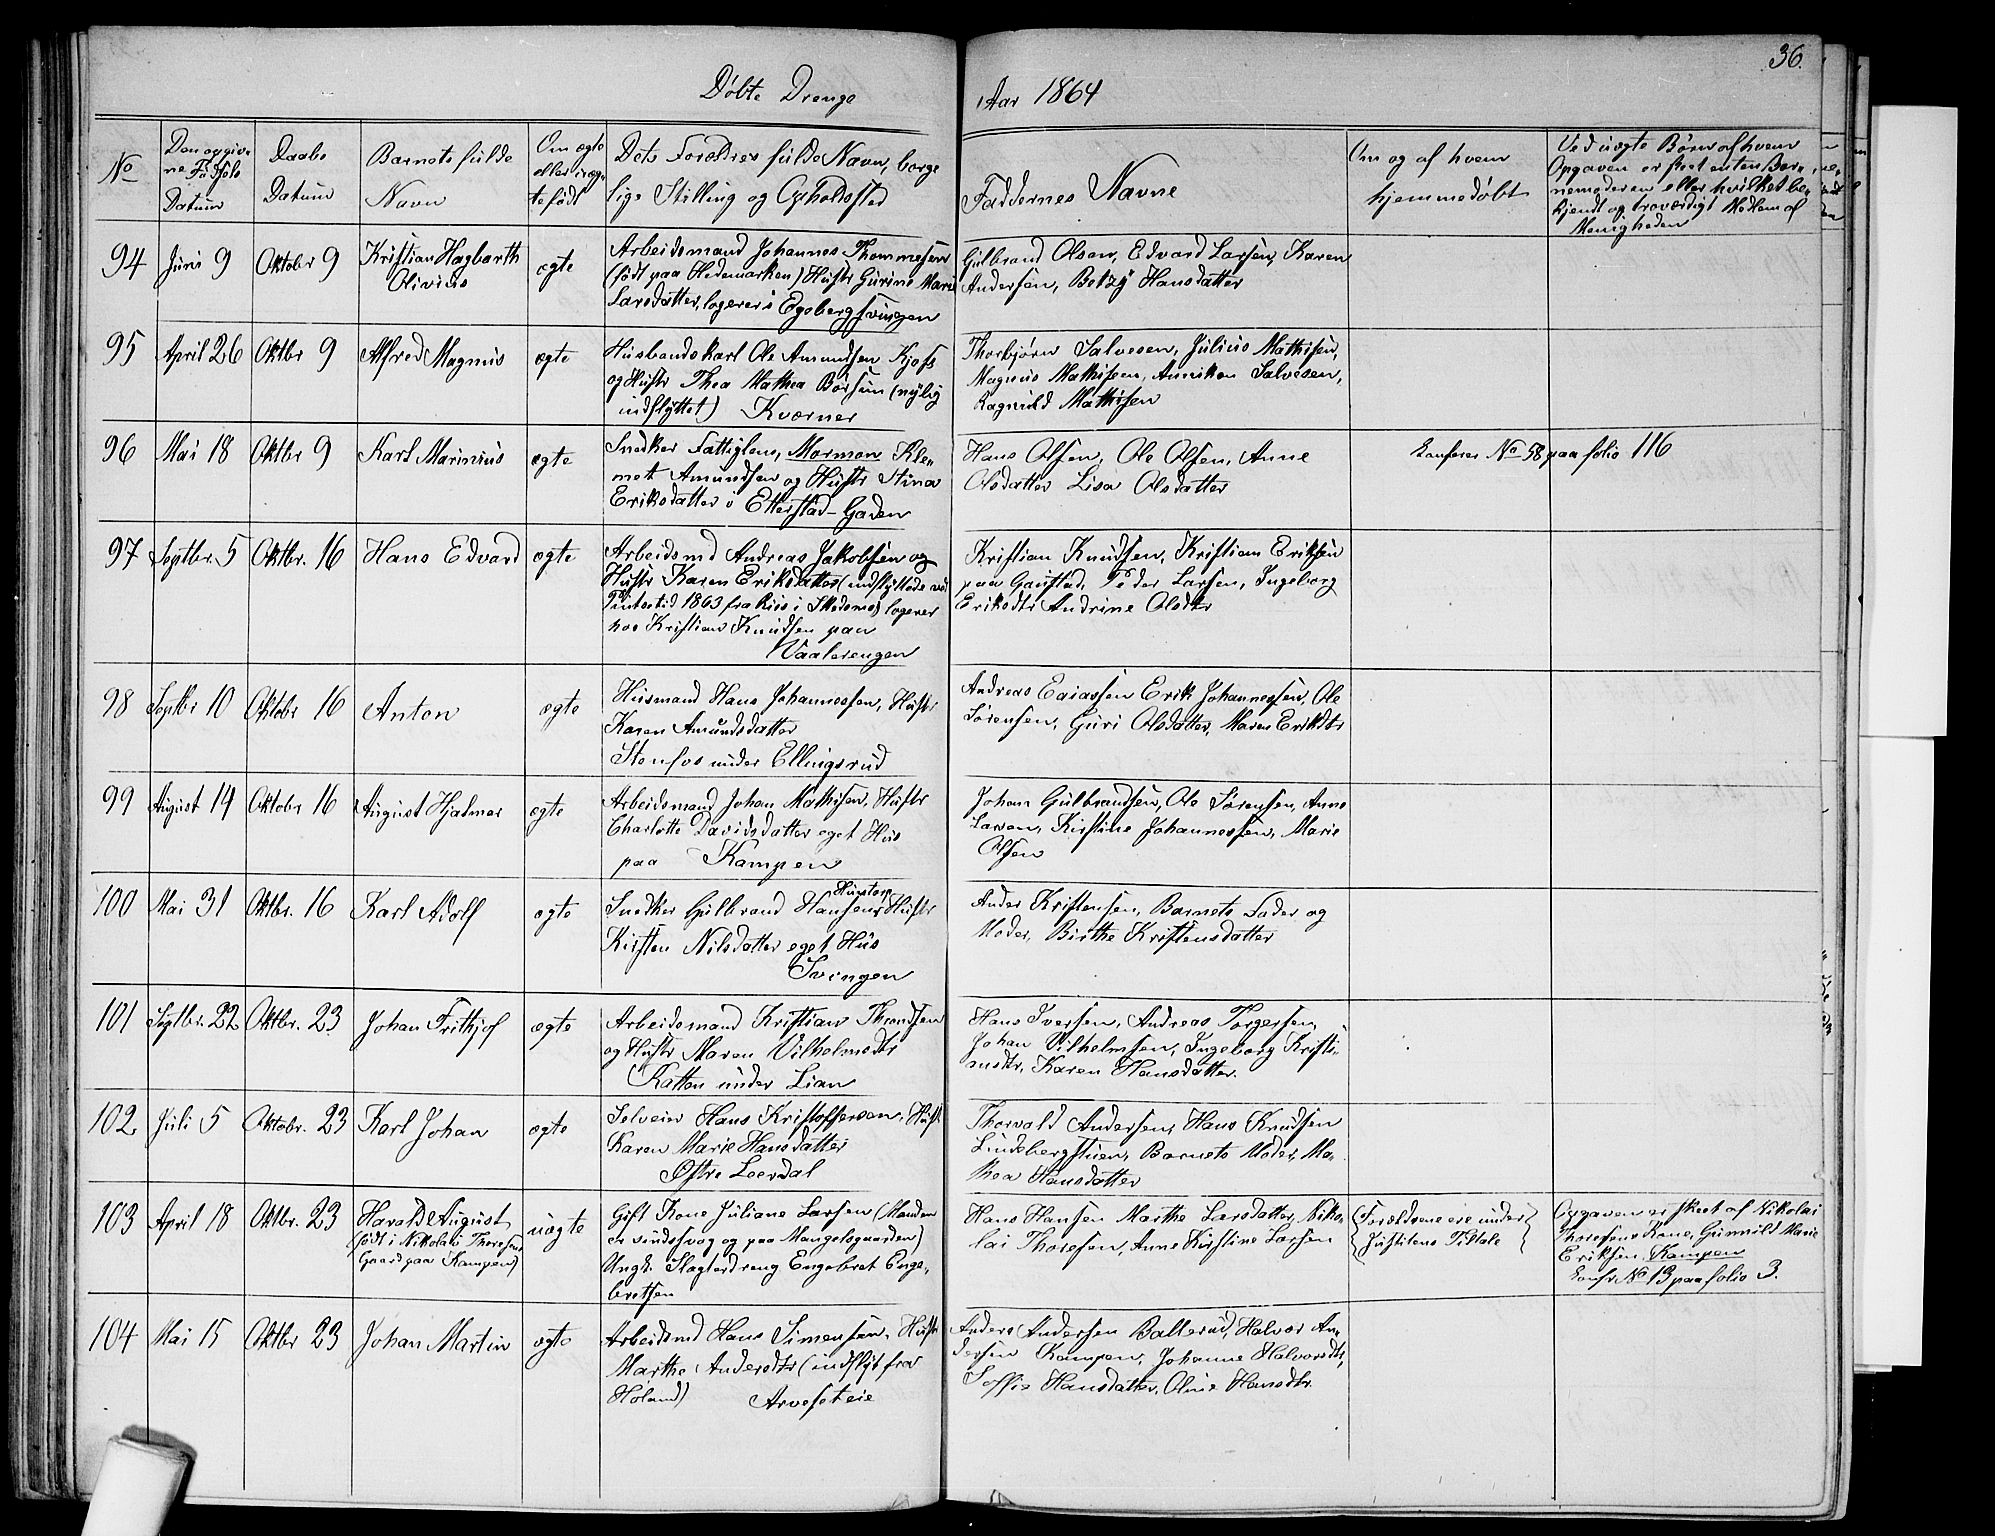 36.
Døbte Drenge
Aar 1864
No
Den opgiv-
ne Fødsels
Datum
Daabs
Datum
Barnets fulde
Navn
Om ægte
eller uæg-
te født
Dets Forældres fulde Navn, borge
lige Stilling og Opholdssted
Faddernes Navne
Om og af hvem
hjemmedøbt
Ved uægte Børn af hvem
Opgaven er skeet enten Bar-
nemoderen eller hvilket be-
kjendt og troværdigt Medlem af
Menigheden
94
Juni 9
Oktober 9
Kristian Hagbarth
Olivius
ægte
Arbeidsmand Johannes Thommesen
(født paa Hedemarken) Hustr Gurine Marie
Larsdatter, logerer i Egebergsvingen
Gulbrand Olsen, Edvard Larsen, Karen
Andersen, Betzy Hansdatter
95
April 26
Oktbr 9
Alfred Magnus
ægte
Husbandskarl Ole Amundsen Kjøs
og Hustr Thea Mathea Børsum (nylig
indflyttet) Kværner
Thorbjørn Salvesen, Julius Mathisen,
Magnus Mathisen, Anniken Salvesen,
Ragnild Mathisen
96
Mai 18
Oktbr 9
Karl Marinius
ægte
Snedker Fattiglem, Mormon Kle-
met Amundsen og Hustr Stina
Eriksdatter i Etterstad-Gaden
Hans Olsen, Ole Olsen, Anne
Olsdatter Lisa Olsdatter
Konferer No 58 paa folio 116
97
Septbr. 5
Oktbr. 16
Hans Edvard
ægte
Arbeidsmd Andreas Jakobsen og
Hustr Karen Eriksdatter (indflyttede ved
Pintsetid 1863 fra Riis i Skedsmo) logerer
hos Kristian Knudsen paa
Vaalerengen
Kristian Knudsen, Kristian Eriksen
paa Gaustad, Peder Larsen, Ingeborg
Eriksdtr Andrine Olsdtr
98
Septbr 10
Oktobr 16
Anton
ægte
Husmand Hans Johannessen, Hustr
Karen Amundsdatter
Stenfos under Ellingsrud
Andreas Eaiassen Erik Johannessen, Ole
Sørensen, Guri Olsdatter, Maren Eriksdtr
99
August 14
Oktobr 16
August Hjalmar
ægte
Arbeidsmand Johan Mathisen, Hustr
Charlotte Davidsdatter eget Hus
paa Kampen
Johan Gulbrandsen, Ole Sørensen, Anne
Larsen, Kirstine Johannessen, Marie
Olsen
100
Mai 31
Oktbr. 16
Karl Adolf
ægte
Snedker Gulbrand Hansen, Hustr
Kirsten Nilsdatter eget Hus
Svingen
Ander Kristensen, Barnets Fader og
Moder, Birthe Kristensdatter
101
Septbr. 22
Oktbr. 23
Johan Frithjof
ægte
Arbeidsmand Kristian Throndsen
og Hustr Maren Vilhelmsdtr
Katten under Lian
Hans Iversen, Andreas Torgersen,
Johan Vilhelmsen, Ingeborg Kristi-
ansdtr, Karen Hansdatter.
102
Juli 5
Oktobr. 23
Karl Johan
ægte
Selveier Hans Kristoffersen, Hustr
Karen Marie Hansdatter
Østre Leerdal
Thorvald Andersen, Hans Knudsen
Lindebergstuen, Barnets Moder, Ma-
thea Hansdatter
103
April 18
Oktbr. 23
Harald August
(født i Nikolai Thoresens
Gaard paa Kampen)
uægte
Gift Kone Juliane Larsen (Manden
er sindssvag og paa Mangelsgaarden)
Ungk. Slagterdreng Engebret Enge-
bretsen
Hans Hansen Marthe Larsdatter, Niko-
lai Thoresen, Anne Kirstine Larsen
Forældrene ere under
Justitens Tiltale
Opgaven er skeet af Nikolai
Thoresens Kone, Gunnild Marie
Eriksen Kampen
Konfr No 13 paa folio 3.
104
Mai 15
Oktbr 23
Johan Martin
ægte
Arbeidsmd Hans Simensen, Hustr
Marthe Andersdtr (indflyt fra
Høland) Arvesteteie
Anders Andersen Ballerud, Halvor An-
dersen Kampen, Johanne Halvorsdtr,
Soffie Hansdatter, Oline Hansdtr.